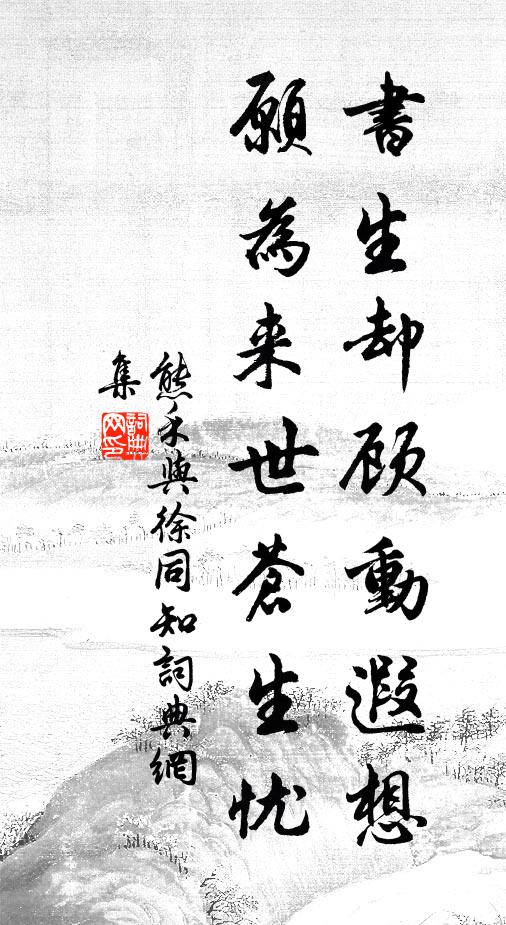 書生却顾動遐想
願為来世蒼生忧
熊禾與徐同知詞典網
集
詞典网印